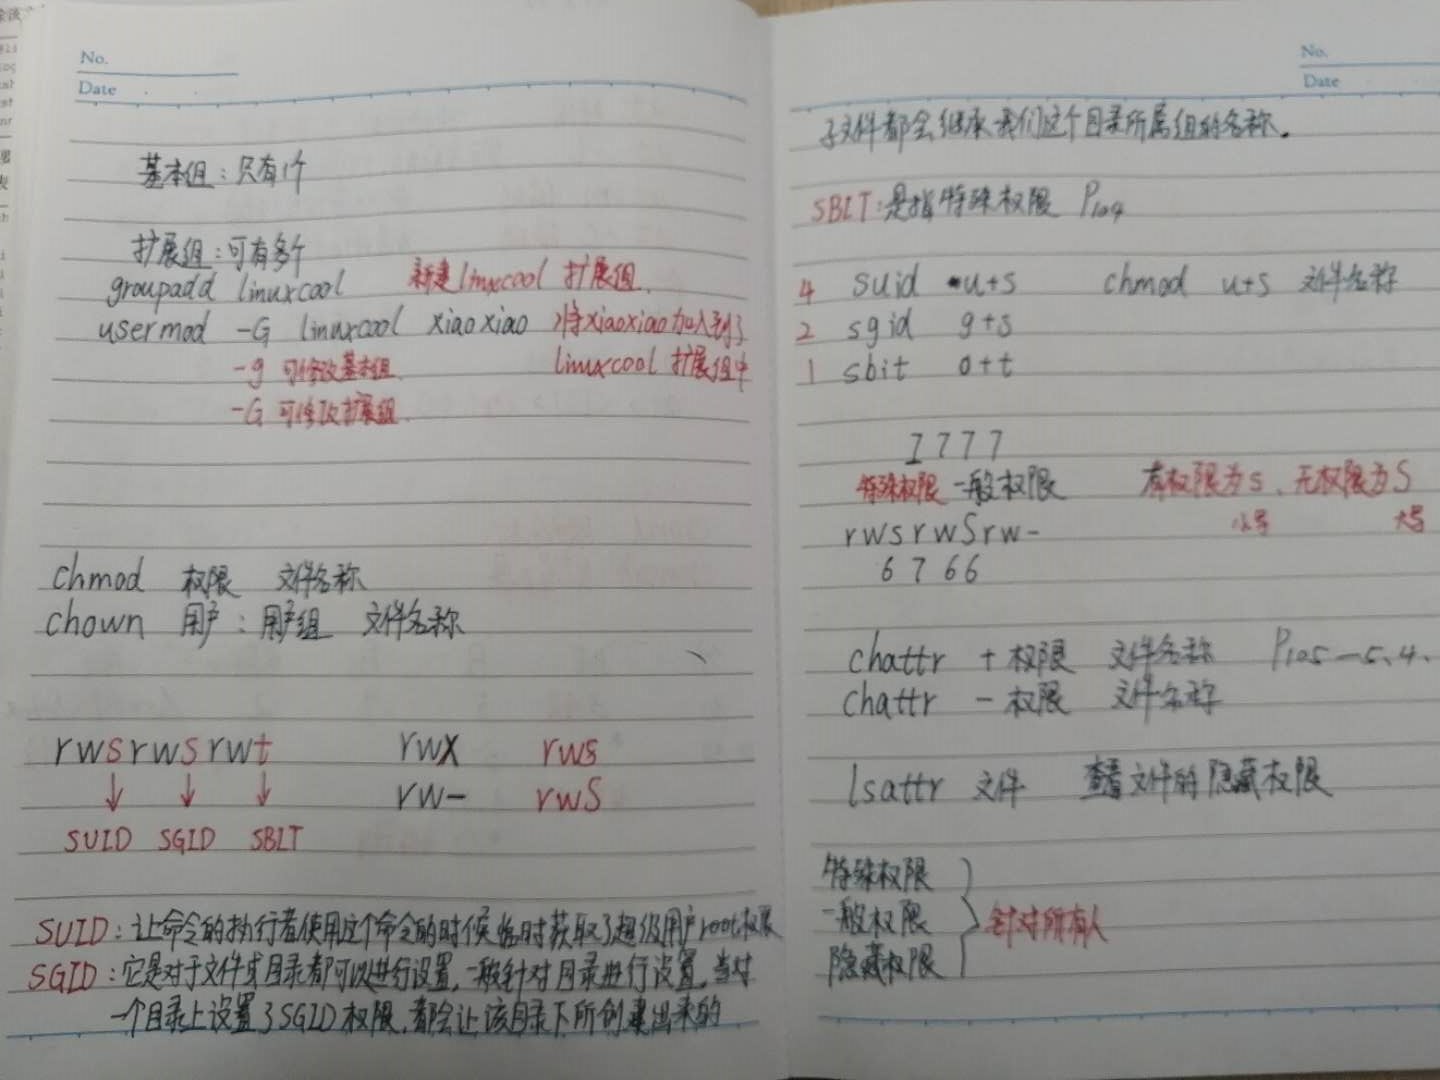 No.
Date
基本组：只有1个
扩展组：可有多个
groupadd linuxcool 新建linuxcool 扩展组.
usermod -G linuxcool xiaoxiao 将xiaoxiao加入到了
-g 可修改基本组. linuxcool 扩展组中
-G 可修改扩展组.
chmod 权限 文件名称
chown 用户：用户组 文件名称
rwsrwsrwt rwx rws
↓ ↓ ↓ rw- rwS
SUID SGID SBIT
SUID：让命令的执行者使用这个命令的时候临时获取了超级用户root权限
SGID：它是对于文件或目录都可以进行设置,一般针对目录进行设置,当对
一个目录上设置了SGID权限,都会让该目录下所创建出来的
No.
Date
子文件都会继承我们这个目录所属组的名称.
SBIT：是指特殊权限 P104
4 suid u+s chmod u+s 文件名称
2 sgid g+s
1 sbit o+t
7777
特殊权限 一般权限 有权限为s、无权限为S
小写 大写
rwsrwSrw-
6766
chattr +权限 文件名称 P105—5.4.
chattr -权限 文件名称
lsattr 文件 查看文件的隐藏权限
特殊权限
一般权限 针对所有人
隐藏权限